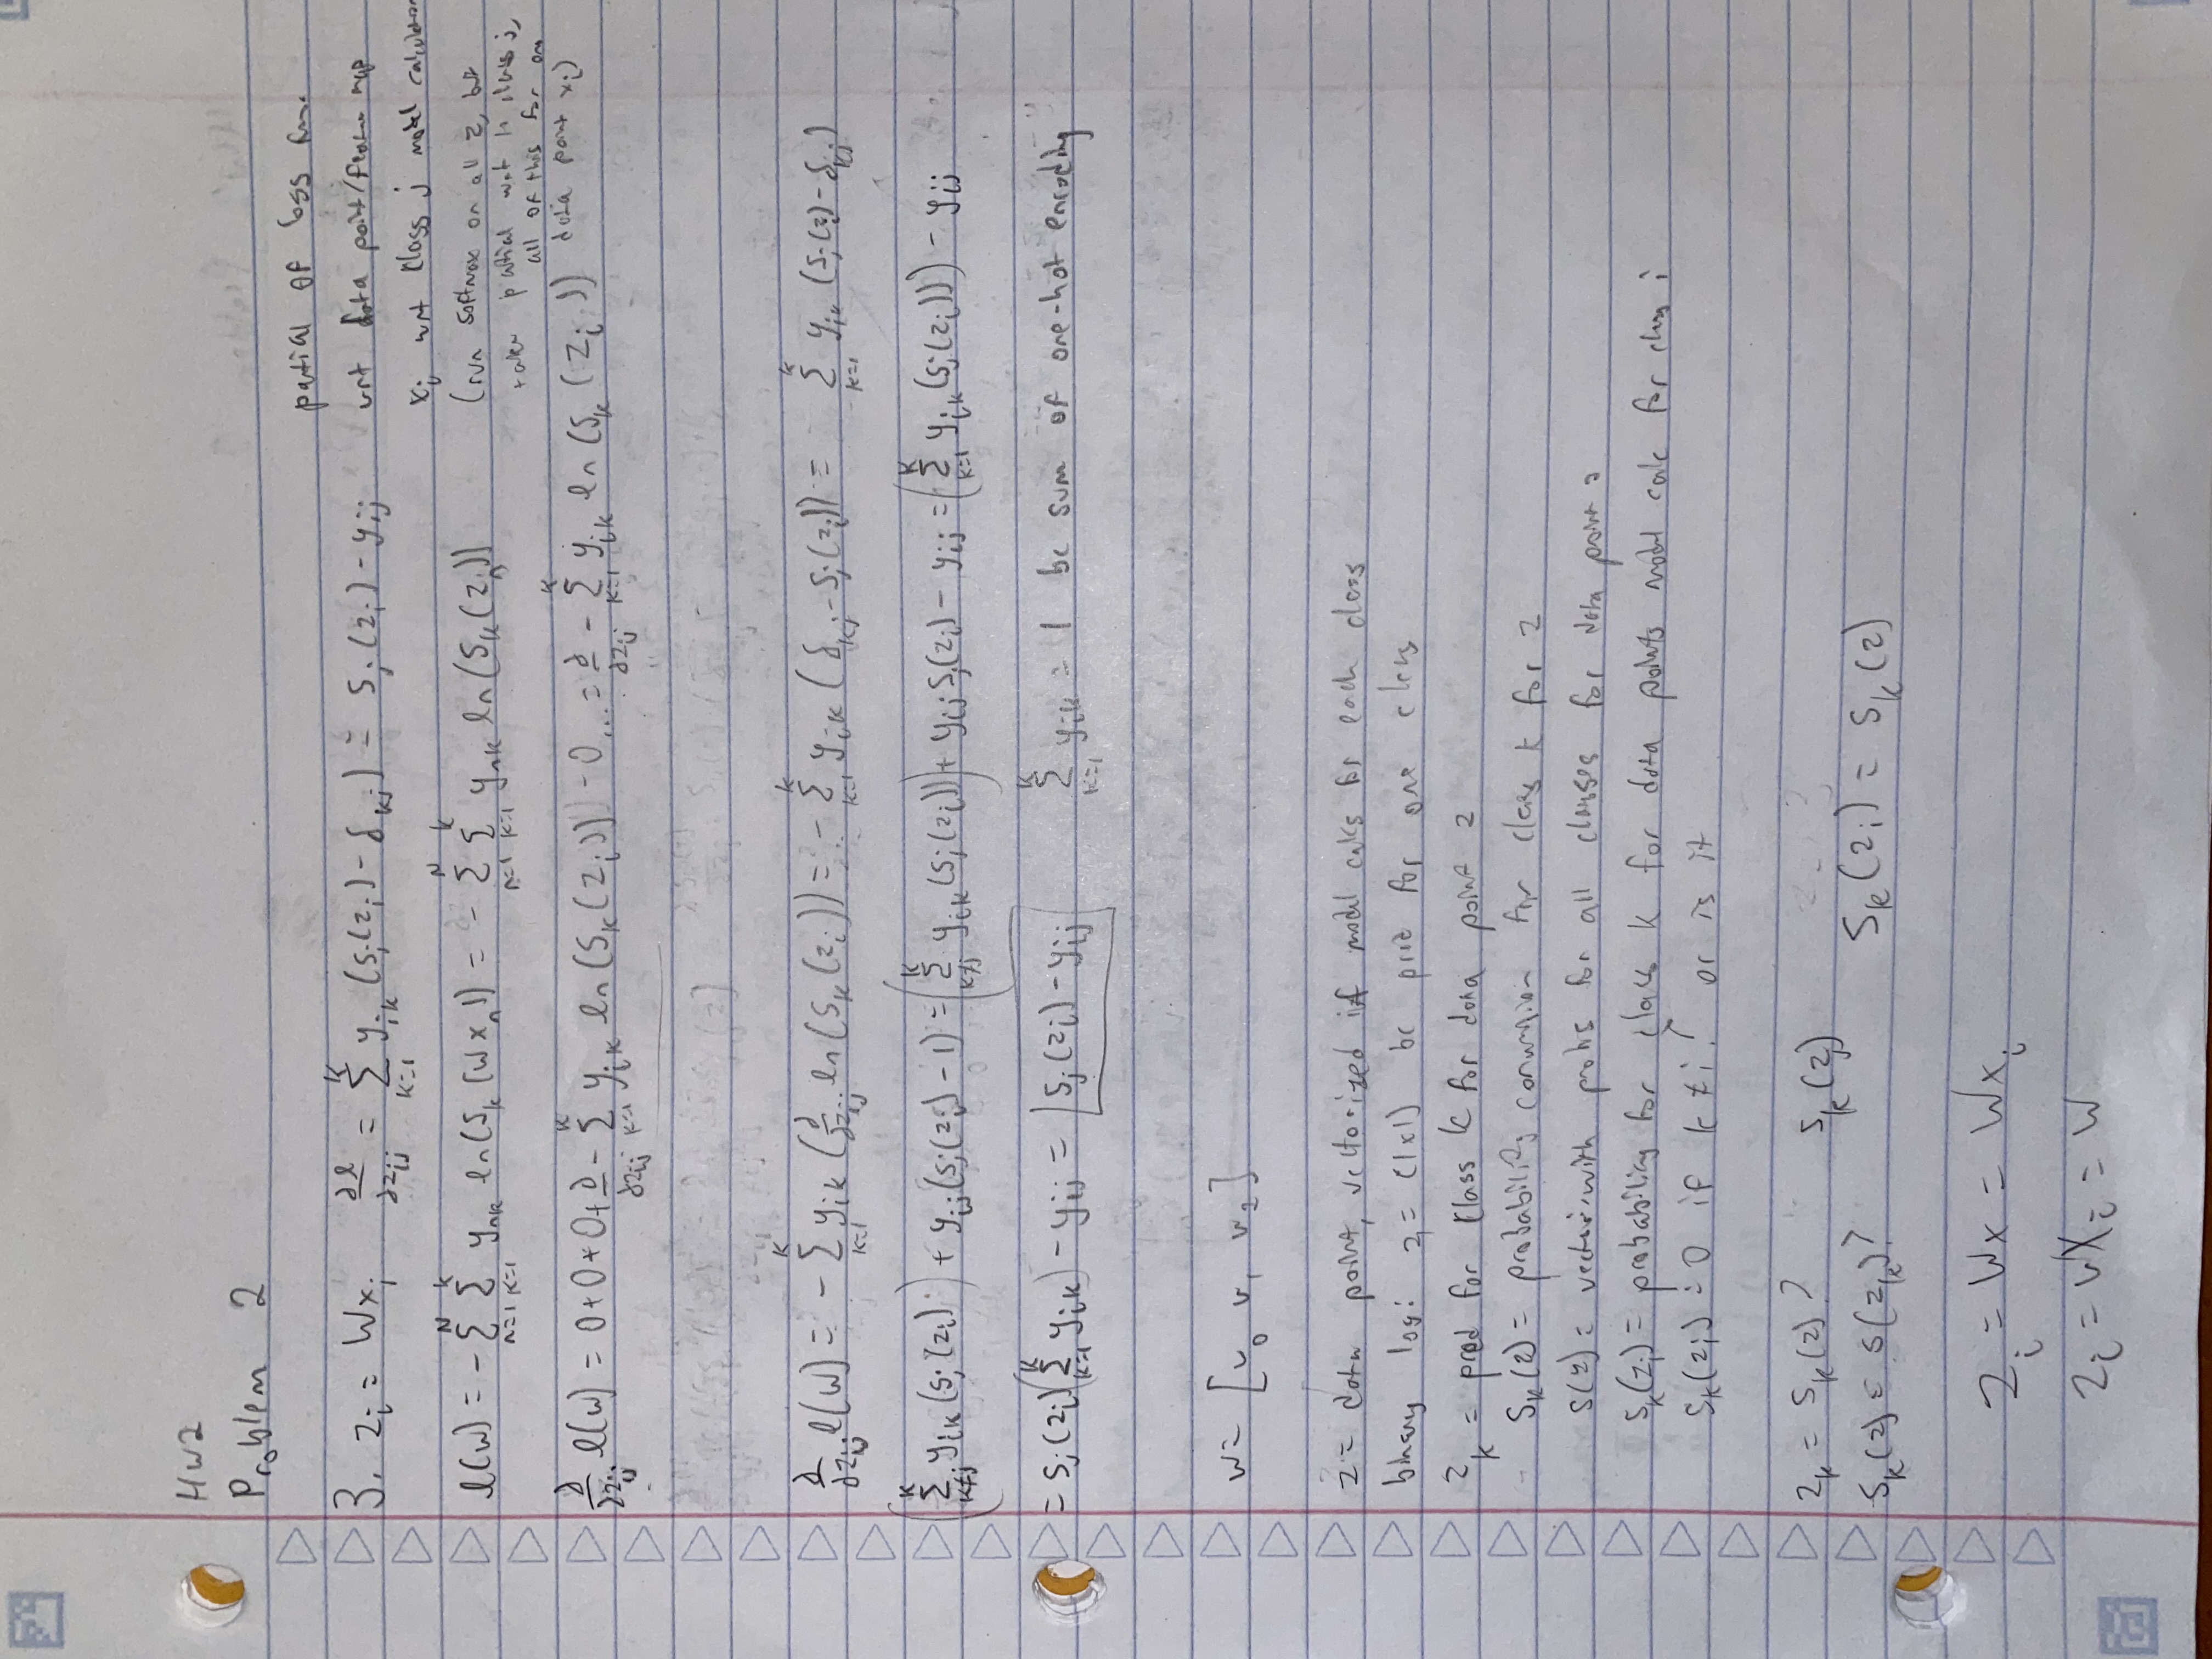 HW2
Problem 2
partial of loss fn.
3. z_i = Wx_i   ∂ℓ/∂z_ij = Σ_{k=1}^{K} y_ik (S_j(z_i) - δ_kj) = S_j(z_i) - y_ij
wrt data point/feature map
x_i wrt class j model calculation
ℓ(W) = - Σ_{n=1}^{N} Σ_{k=1}^{K} y_nk ln(S_k(Wx_n)) = - Σ_{n=1}^{N} Σ_{k=1}^{K} y_nk ln(S_k(z_n))
(run softmax on all z, but
take partial wrt to class j,
all of this for one
data point x_i)
∂/∂z_ij ℓ(W) = 0+0+0+ ∂/∂z_ij - Σ_{k=1}^{K} y_ik ln(S_k(z_i)) - 0... = ∂/∂z_ij - Σ_{k=1}^{K} y_ik ln(S_k(z_i))
∂/∂z_ij ℓ(W) = - Σ_{k=1}^{K} y_ik (∂/∂z_ij ln(S_k(z_i)) = - Σ_{k=1}^{K} y_ik (δ_kj - S_j(z_i)) = Σ_{k=1}^{K} y_ik (S_j(z_i) - δ_kj)
(Σ_{k≠j}^{K} y_ik (S_j(z_i)) + y_ij (S_j(z_i) - 1) = (Σ_{k≠j}^{K} y_ik (S_j(z_i))) + y_ij S_j(z_i) - y_ij = (Σ_{k=1}^{K} y_ik (S_j(z_i))) - y_ij
= S_j(z_i) (Σ_{k=1}^{K} y_ik) - y_ij = S_j(z_i) - y_ij   Σ_{k=1}^{K} y_ik = 1 bc sum of one-hot encoding
w = [w_0 w_1 w_2]
z = data point, vectorized if model calcs for each class
binary log: z = (1x1) bc pred for one class
z_k = pred for class k for data point z
S_k(z) = probability conversion for class k for z
S(z) = vector with probs for all classes for data point z
S_k(z_i) = probability for class k for data points model calc for class i
S_k(z_i) = 0 if k ≠ i? or is it
z_k = S_k(z)?   S_k(z_j)
S_k(z) = S(z_k)?   S_k(z_i) = S_k(z)
z_i = Wx = Wx_i
z_i = WX_i = W